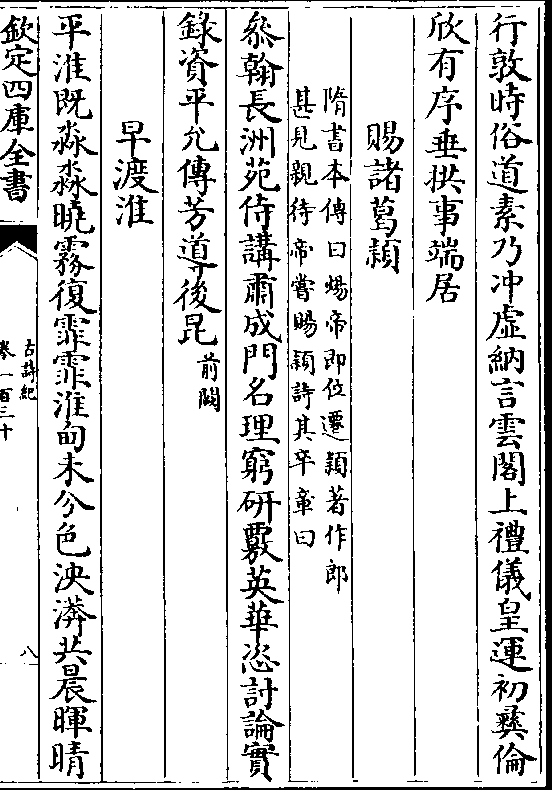 行敦時俗道素乃冲虚納言雲閣上禮儀皇運初彛倫
欣有序垂拱事端居
賜諸葛潁
隋書本傳曰煬帝即位遷潁著作郎
甚見親待帝嘗賜潁詩其卒章曰
叅翰長洲苑侍講肅成門名理窮研覈英華恣討論實
錄資平允傳芳導後昆
前闕
早渡淮
平淮既淼淼曉霧復霏霏淮甸未分色泱漭共晨暉晴
欽定四庫全書
古詩紀
卷一百三十
八